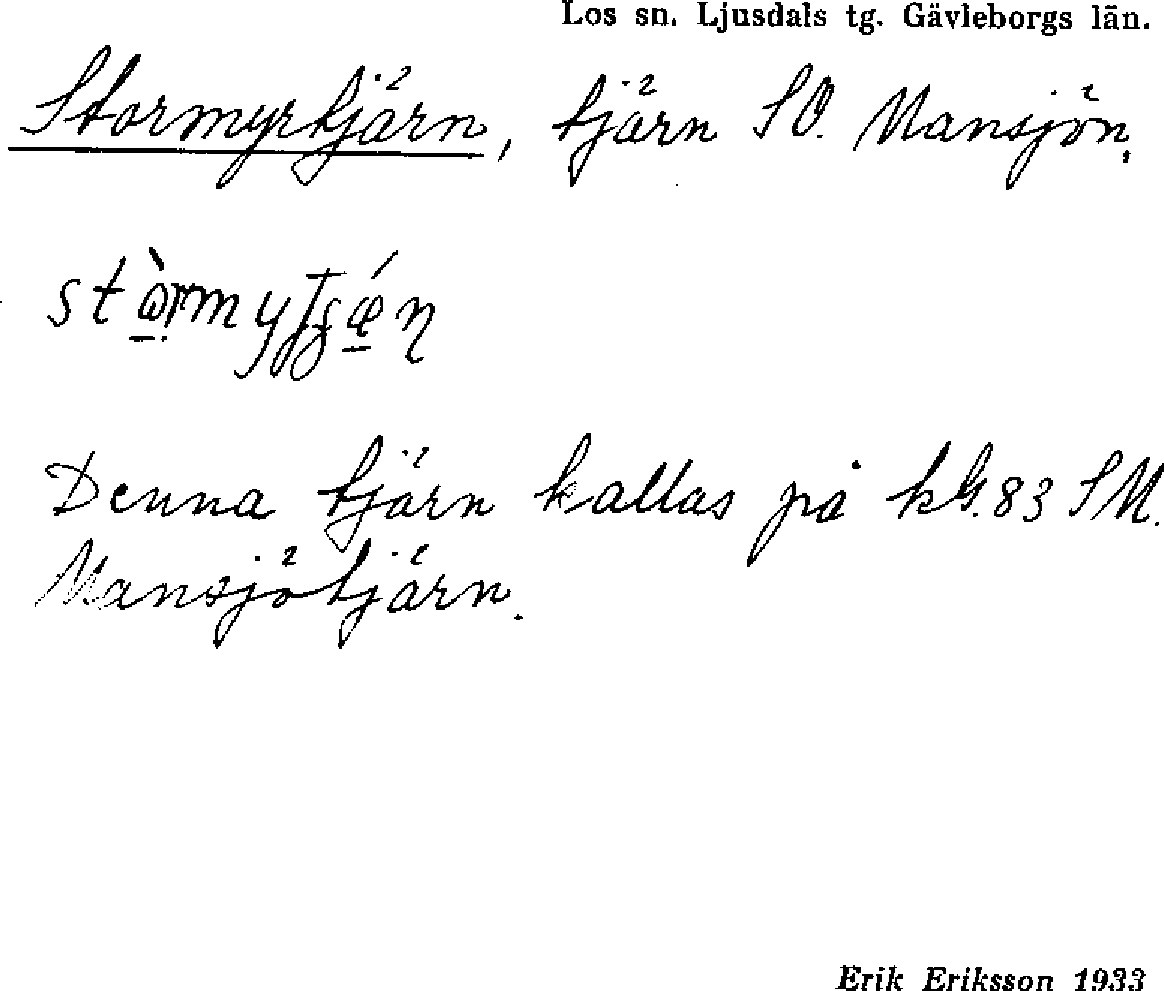 Los sn. Ljusdals tg. Gävleborgs län.
Stormyrtjärn, tjärn SO. Mansjön.
Denna tjärn kallas på kbl. 83 SM.
Mansjötjärn.
Erik Eriksson 1933